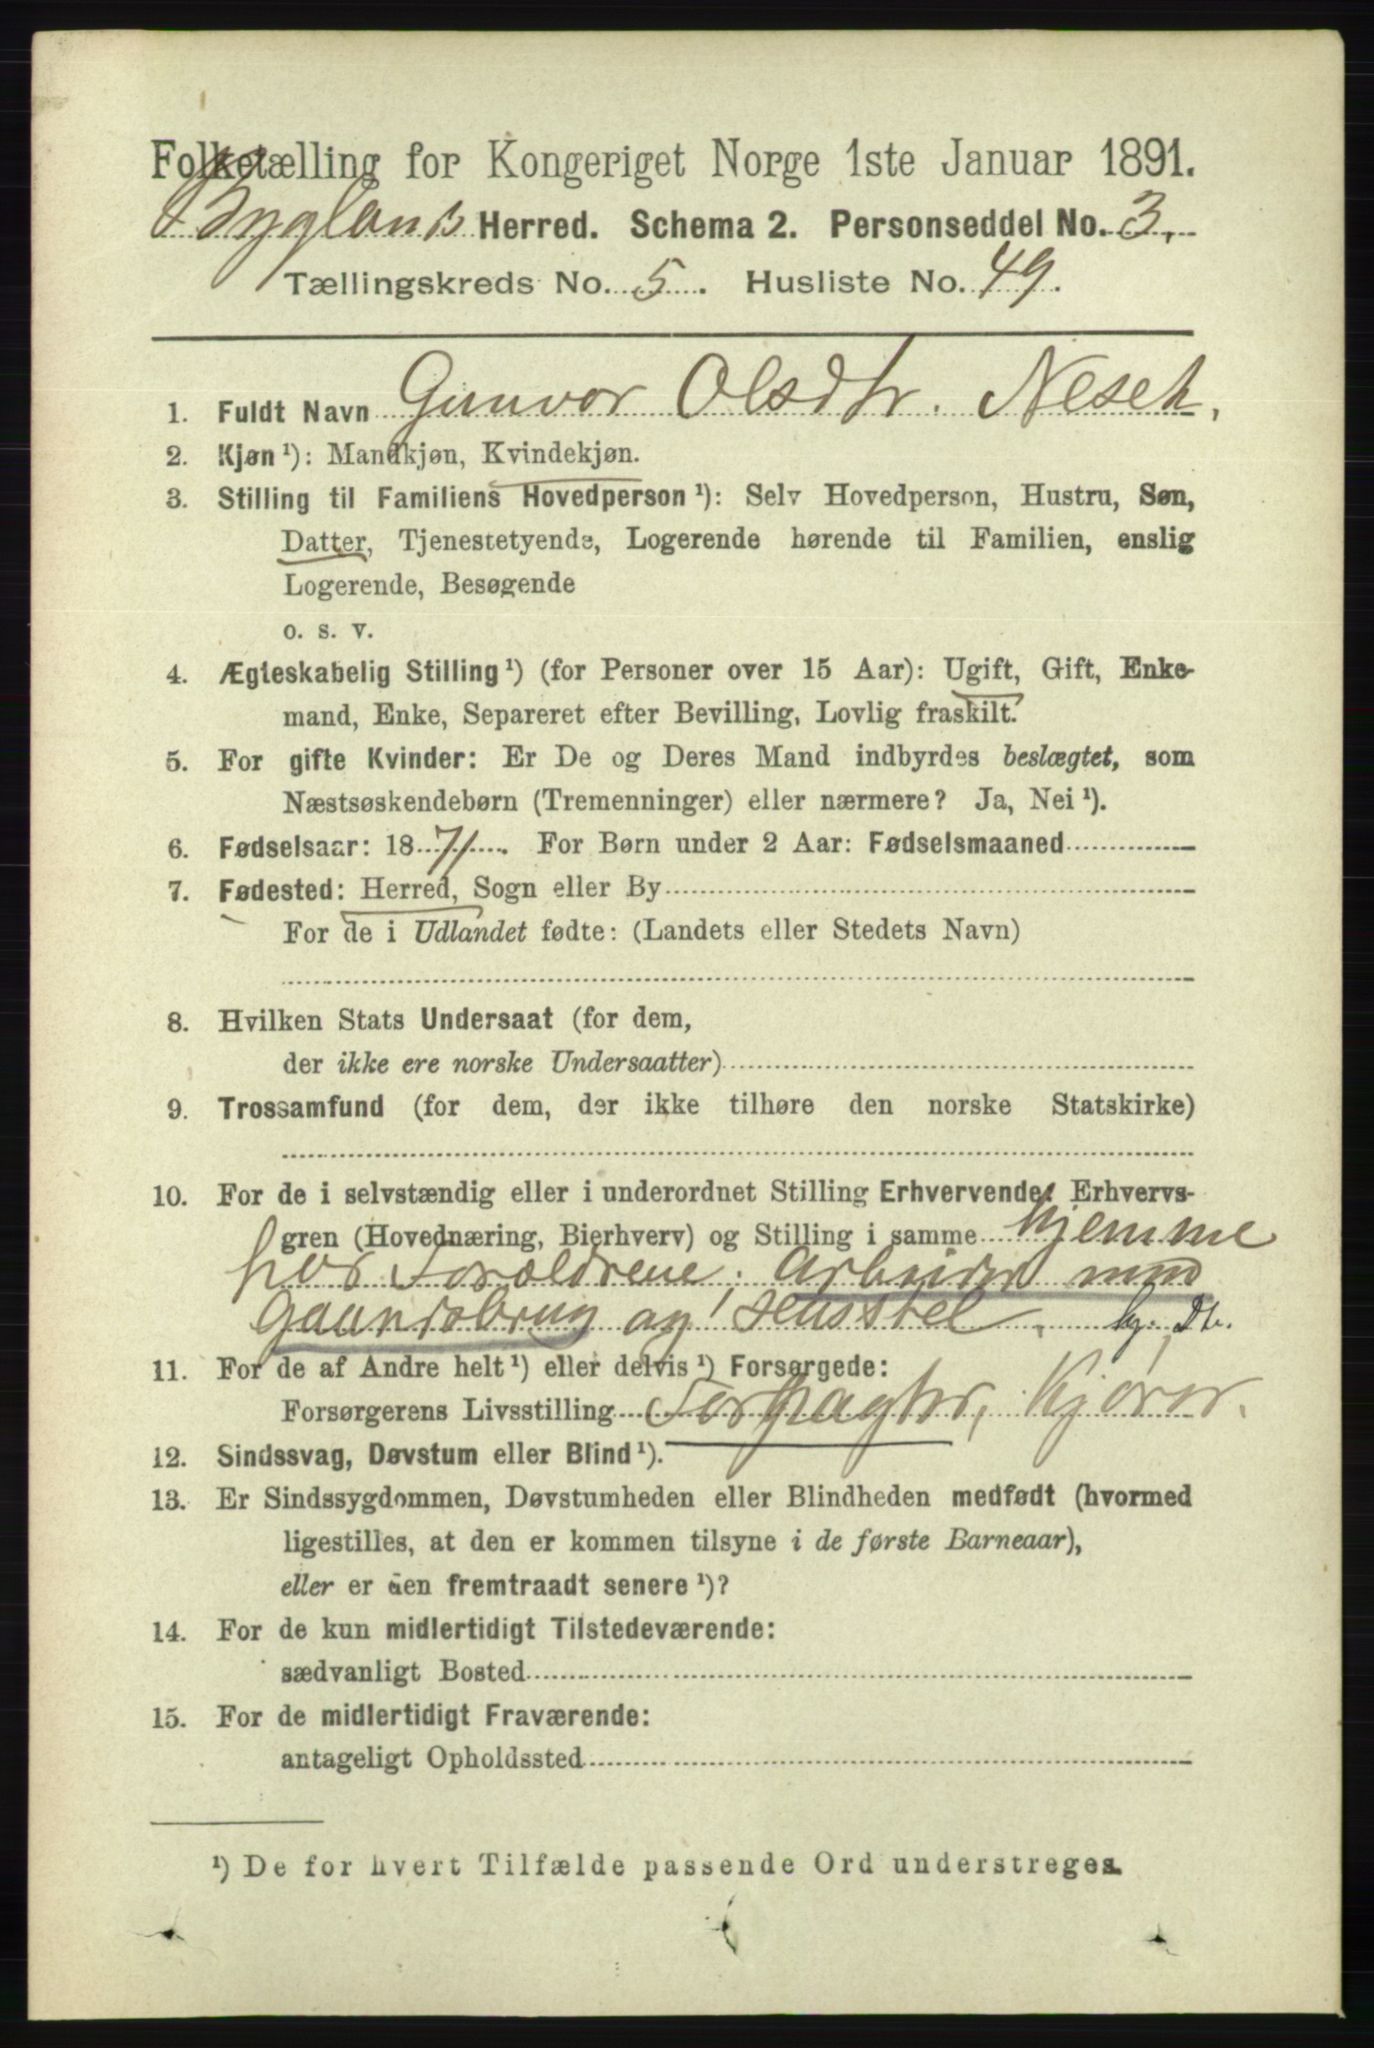 Folketælling for Kongeriget Norge 1ste Januar 1891.
Byglands Herred. Schema 2. Personseddel No. 3.
Tællingskreds No. 5. Husliste No. 49.
1. Fuldt Navn Gunvor Olsdtr. Neset.
2. Kjøn ¹): Mandkjøn, Kvindekjøn.
3. Stilling til Familiens Hovedperson ¹): Selv Hovedperson, Hustru, Søn,
Datter, Tjenestetyende, Logerende hørende til Familien, enslig
Logerende, Besøgende
o. s. v.
4. Ægteskabelig Stilling ¹) (for Personer over 15 Aar): Ugift, Gift, Enke-
mand, Enke, Separeret efter Bevilling, Lovlig fraskilt.
5. For gifte Kvinder: Er De og Deres Mand indbyrdes beslægtet, som
Næstsøskendebørn (Tremenninger) eller nærmere? Ja, Nei ¹).
6. Fødselsaar: 1871. For Børn under 2 Aar: Fødselsmaaned
7. Fødested: Herred, Sogn eller By
For de i Udlandet fødte: (Landets eller Stedets Navn)
8. Hvilken Stats Undersaat (for dem,
der ikke ere norske Undersaatter)
9. Trossamfund (for dem, der ikke tilhøre den norske Statskirke)
10. For de i selvstændig eller i underordnet Stilling Erhvervende: Erhvervs-
gren (Hovednæring, Bierhverv) og Stilling i samme hjemme
hos Forældrene, arbeider med
Gaardsbrug og Husstel. hj. Dtr.
11. For de af Andre helt ¹) eller delvis ¹) Forsørgede:
Forsørgerens Livsstilling Forpagter, Kjører.
12. Sindssvag, Døvstum eller Blind ¹).
13. Er Sindssygdommen, Døvstumheden eller Blindheden medfødt (hvormed
ligestilles, at den er kommen tilsyne i de første Barneaar),
eller er den fremtraadt senere ¹)?
14. For de kun midlertidigt Tilstedeværende:
sædvanligt Bosted
15. For de midlertidigt Fraværende:
antageligt Opholdssted
¹) De for hvert Tilfælde passende Ord understreges.